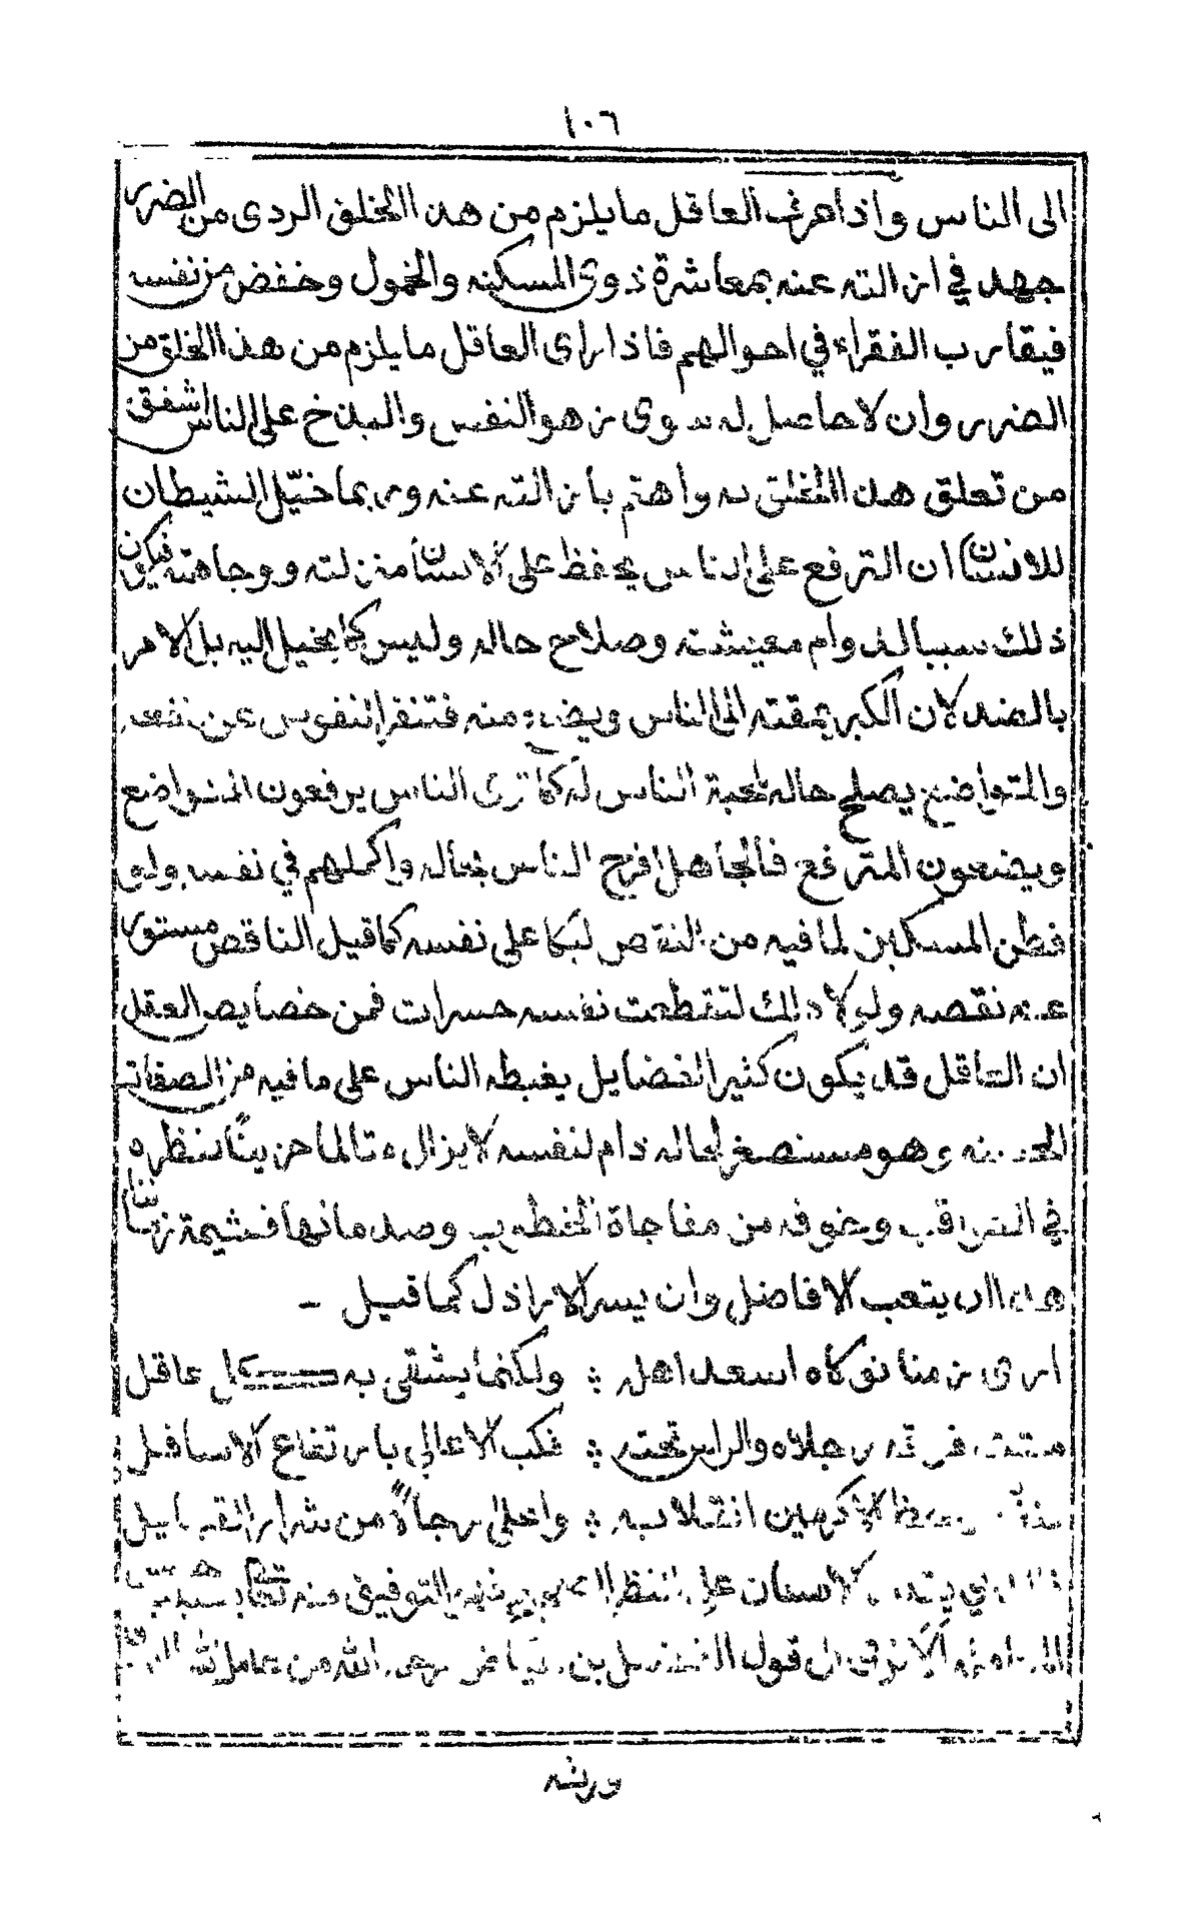 ١٠٦
الى الناس واذا عرف العاقل ما يلزم من هذا الخلق الردى من الضرر
جهد في ازالته عنه بمعاشرة ذوى المسكنه والخمول وخفض من نفسه
فيقارب الفقراء في احوالهم فاذا راى العاقل ما يلزم من هذا الخلق من
الضرر وان لا حاصل له سوى زهو النفس والبذخ على الناس اشفق
من تعلق هذا الخلق به واهتم بازالته عنه وربما خيّل الشيطان
للانسان ان الترفع على الناس يحفظ على الانسان منزلته ووجاهته فيكون
ذلك سببا لدوام معيشته وصلاح حاله وليس كما يخيل اليه بل الامر
بالضد لان الكبر يمقته الى الناس ويضعه منه فتنفر النفوس عن نفعه
والمتواضع يصلح حاله لمحبة الناس له كما ترى الناس يرفعون المتواضع
ويضعون المترفع فالجاهل افرح الناس بحاله واكملهم في نفسه ولو
فطن المسكين لما فيه من النقص لبكا على نفسه كما قيل الناقص مستور
عنه نقصه ولولا ذلك لتقطعت نفسه حسرات فمن خصايص العقل
ان العاقل قد يكون كثير الفضايل يغبطه الناس على ما فيه من الصفات
وهو مستصغر لحاله ذام لنفسه لا يزال متالما حزينًا لنظره
في العواقب وخوفه من مفاجاة الخطوب وصدماتها فشيمة زماننا
هذا ان يتعب الافاضل وان يسر الاراذل كما قيل –
ارى زمنا نوكاه اسعد اهله ؛ ولكنما يشقى به كل عاقل
مشت فوقه رجلاه والراس تحته ؛ فكب الاعالي بارتفاع الاسافل
الاكرمين انقلابه ؛ واعلى رجالًا من شرار القبايل
الانسان على النظر التوفيق منه تعالى
ان قول الفضيل بن عياض رحمه الله من عامل لله
ورثه